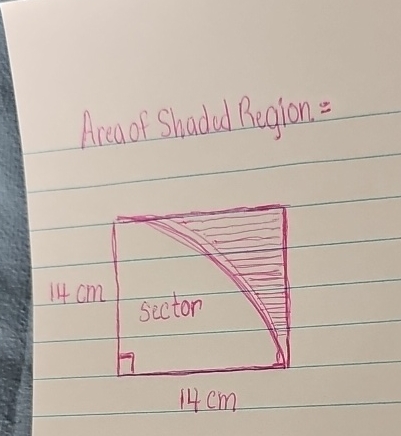 Area of Shaded Region =
14 cm
sector
14 cm